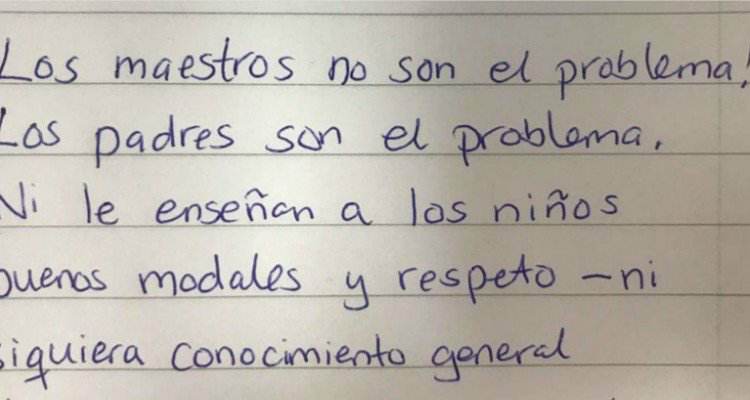 Los maestros no son el problema!
Los padres son el problema.
Ni le enseñan a los niños
buenos modales y respeto – ni
siquiera conocimiento general